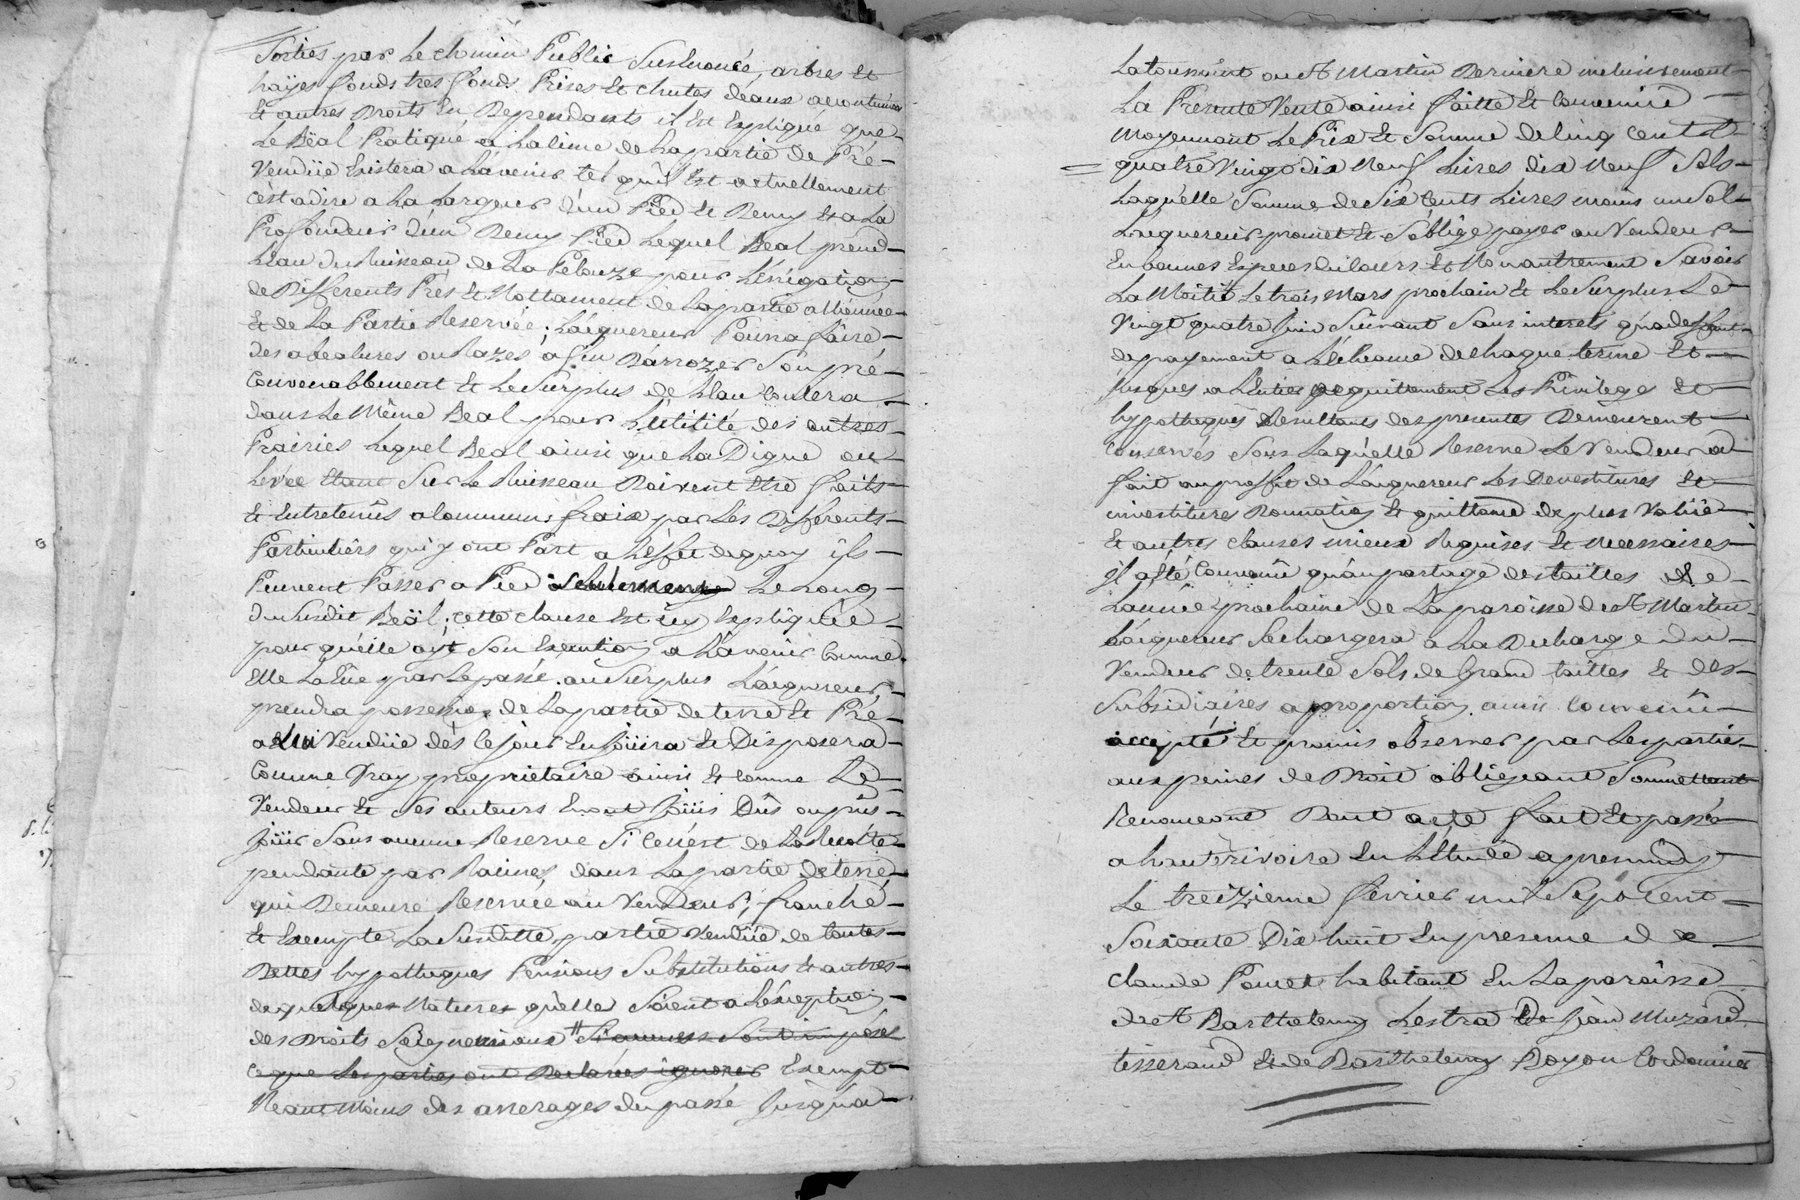 Sorties par Le chemin Public Susenoncé, arbres Et
hayes fonds tres fonds Prises Et chutes deaux accoutumées
Et autres Droits En Dependants il Est Expliqué que
Le Béal Pratiqué a La Cime de La partie de Pré
Vendüe Existera a L'avenir tel qu'il Est actuellement
c'est adire a La Largeur d'un Pied Et Demy Et a La
Profondeur d'un Demy Pied Lequel Béal prend
L'eau du Ruisseau de La Pelouze pour L'irrigation
de Differents Prés Et Nottament de La partie allienneé
Et de La Partie Reservée ; L'aiquereur Pourra faire
des abealures ou Razes afin D'arrozer Son pré
Convenablement Et Le Surplus de L'eau Coulera
dans Le Même Béal pour L'utilité des autres
Prairies Lequel Béal ainsi que La Digue ou
Levée Etant Sur Le Ruisseau Doivent Etre faits
Et Entretenus a Communs fraix par Les Differents
Particuliers qui y ont Part a L'effet de quoy ils
Peuvent Passer a Pied Seulement Le Long
du Susdit Béal ; cette clause Est icy Expliquée
pour qu'elle ayt Son Execution a L'avenir Comme
Elle La Eüe par Le passé. au Surplus L'aiquereur
prendra possession de La partie de terre Et Pré
a Lui Vendüe dès Ce jour En joüira Et Disposera
Comme Vray proprietaire ainsi Et comme Le
Vendeur Et Ses auteurs En ont joüis Dûs ou pûs
joüir Sans aucune Reserve Si Ce n'est de La Recolte
pendante par Racines dans La partie de terre
qui Demeure Reservée au Vendeur ; franche
Et Exempte La Susditte partie Vendüe de toutes
Dettes hypotheques Pensions Substitutions Et autres
de quelques Natures qu'elle Soient a L'exception
des Droits Seigneuriaux # Si aucuns Sont imposés
Ce que Les parties ont Declarées ignorer Exempt
Neant Moins des arrerages du passé Jusqu'a
La toussaint ou St Martin Derniere inclusivement
La Presente Vente ainsi faitte Et Convenüe
Moyennant Le Prix Et Somme de Cinq Cent
quatre Vingt dix Neuf Livres dix Neuf Sols
Laquelle Somme de Six Cents Livres moins un Sol
L'aiquereur promet Et S'oblige payer au Vendeur
En bonnes Especes du Cours Et Non autrement Savoir
La Moitié Le trois Mars prochain Et Le Surplus Le
Vingt quatre Juin Suivant Sans interets qu'a deffaut
de payement a L'echeance de chaque terme Et
jusques a L'entier acquittement Les Privilege Et
hypotheques Resultants des presentes Demeurent
Conservés Sous Laquelle Reserve Le Vendeur a
fait au proffit de L'aiquereur Les Devestitures Et
investitures Donnation Et quittance de plus Valüe
Et autres clauses mieux Requises Et Necessaires
il a Eté Convenû qu'au partage des tailles de
L'année prochaine de La paroisse de St Martin
L'aiquereur Se chargera a La Decharge du
Vendeur de trente Sols de Grand tailles Et des
Subsidiaires a proportion. ainsi Convenû
accepté Et promis observer par Les parties
aux peines de Droit obligeant Soumettant
Renonceant Dont acte fait Et passé
a hauterivoire En L'Etude apres midy
Le treizieme fevrier mil Sept Cent
Soixante Dix huit En presence de
Claude Poncet habitant En La paroisse
de St Barthelemy Lestra De Jean Muzard
tisserand Et de Barthelemy Boyon Cordonnier